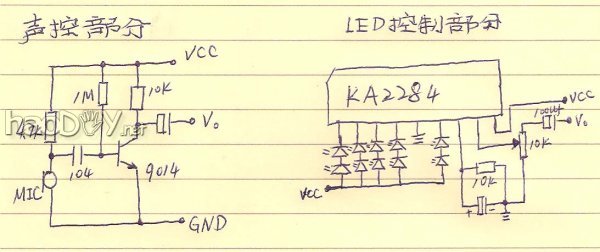 声控部分
VCC
1M
10K
4.7K
V₀
104
9014
MIC
GND
hadDIY.net
LED控制部分
KA2284
VCC
100uf
V₀
10K
VCC
10K
+ -